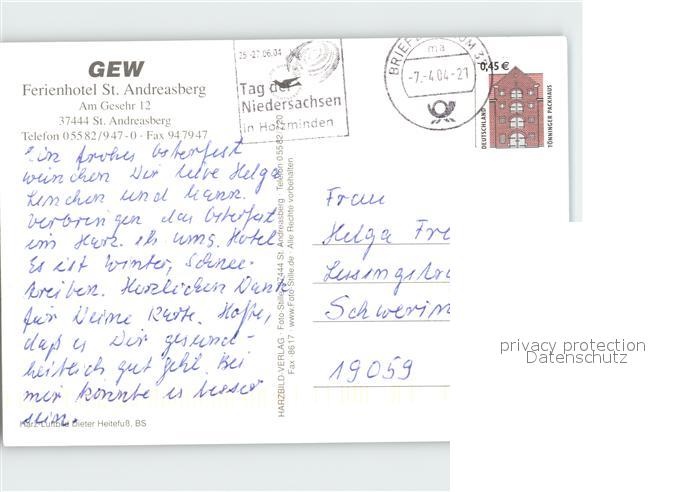 GEW
Ferienhotel St. Andreasberg
Am Gesehr 12
37444 St. Andreasberg
Telefon 05582/947-0 · Fax 947947
Ein frohes Osterfest
wünschen Dir liebe Helga
und
verbringen das Osterfest
im Harz. Hotel.
Es ist Winter, Schnee-
treiben. Herzlichen Dank
für Deine Karte. Hoffe,
daß es Dir gesund-
heitlich gut geht. Bei
mir könnte es besser
sein.
Harz-Luftbild Dieter Heitefuß, BS
HARZBILD-VERLAG · Foto-Stille · 37444 St. Andreasberg · Telefon 05582/
Fax 8617 · www.Foto-Stille.de · Alle Rechte vorbehalten
25.-27.06.04
Tag der
Niedersachsen
in Holzminden
BRIEFZENTRUM 3
ma
-7.-4.04-21
0,45 €
DEUTSCHLAND
TÖNNINGER PACKHAUS
Frau
Helga Fre
Lessingstra
Schwerin
19059
privacy protection
Datenschutz